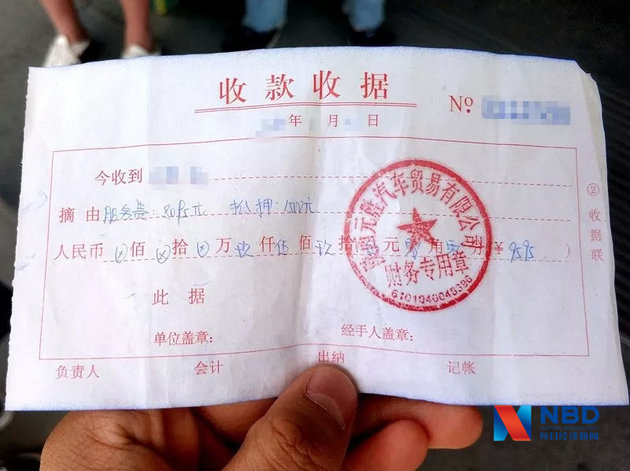 收款收据
№
年 月 日
今收到
摘 由 服务费:8095元 抵押:1500元
人民币 ⊗ 佰 ⊗ 拾 ⊗ 万 玖 仟 伍 佰 玖 拾 伍 元 零 角 零 分(¥ 9595 )
此 据
单位盖章: 经手人盖章:
负责人 会计 出纳 记帐
②收据联
元胜汽车贸易有限公司
财务专用章
NBD
每日经济新闻